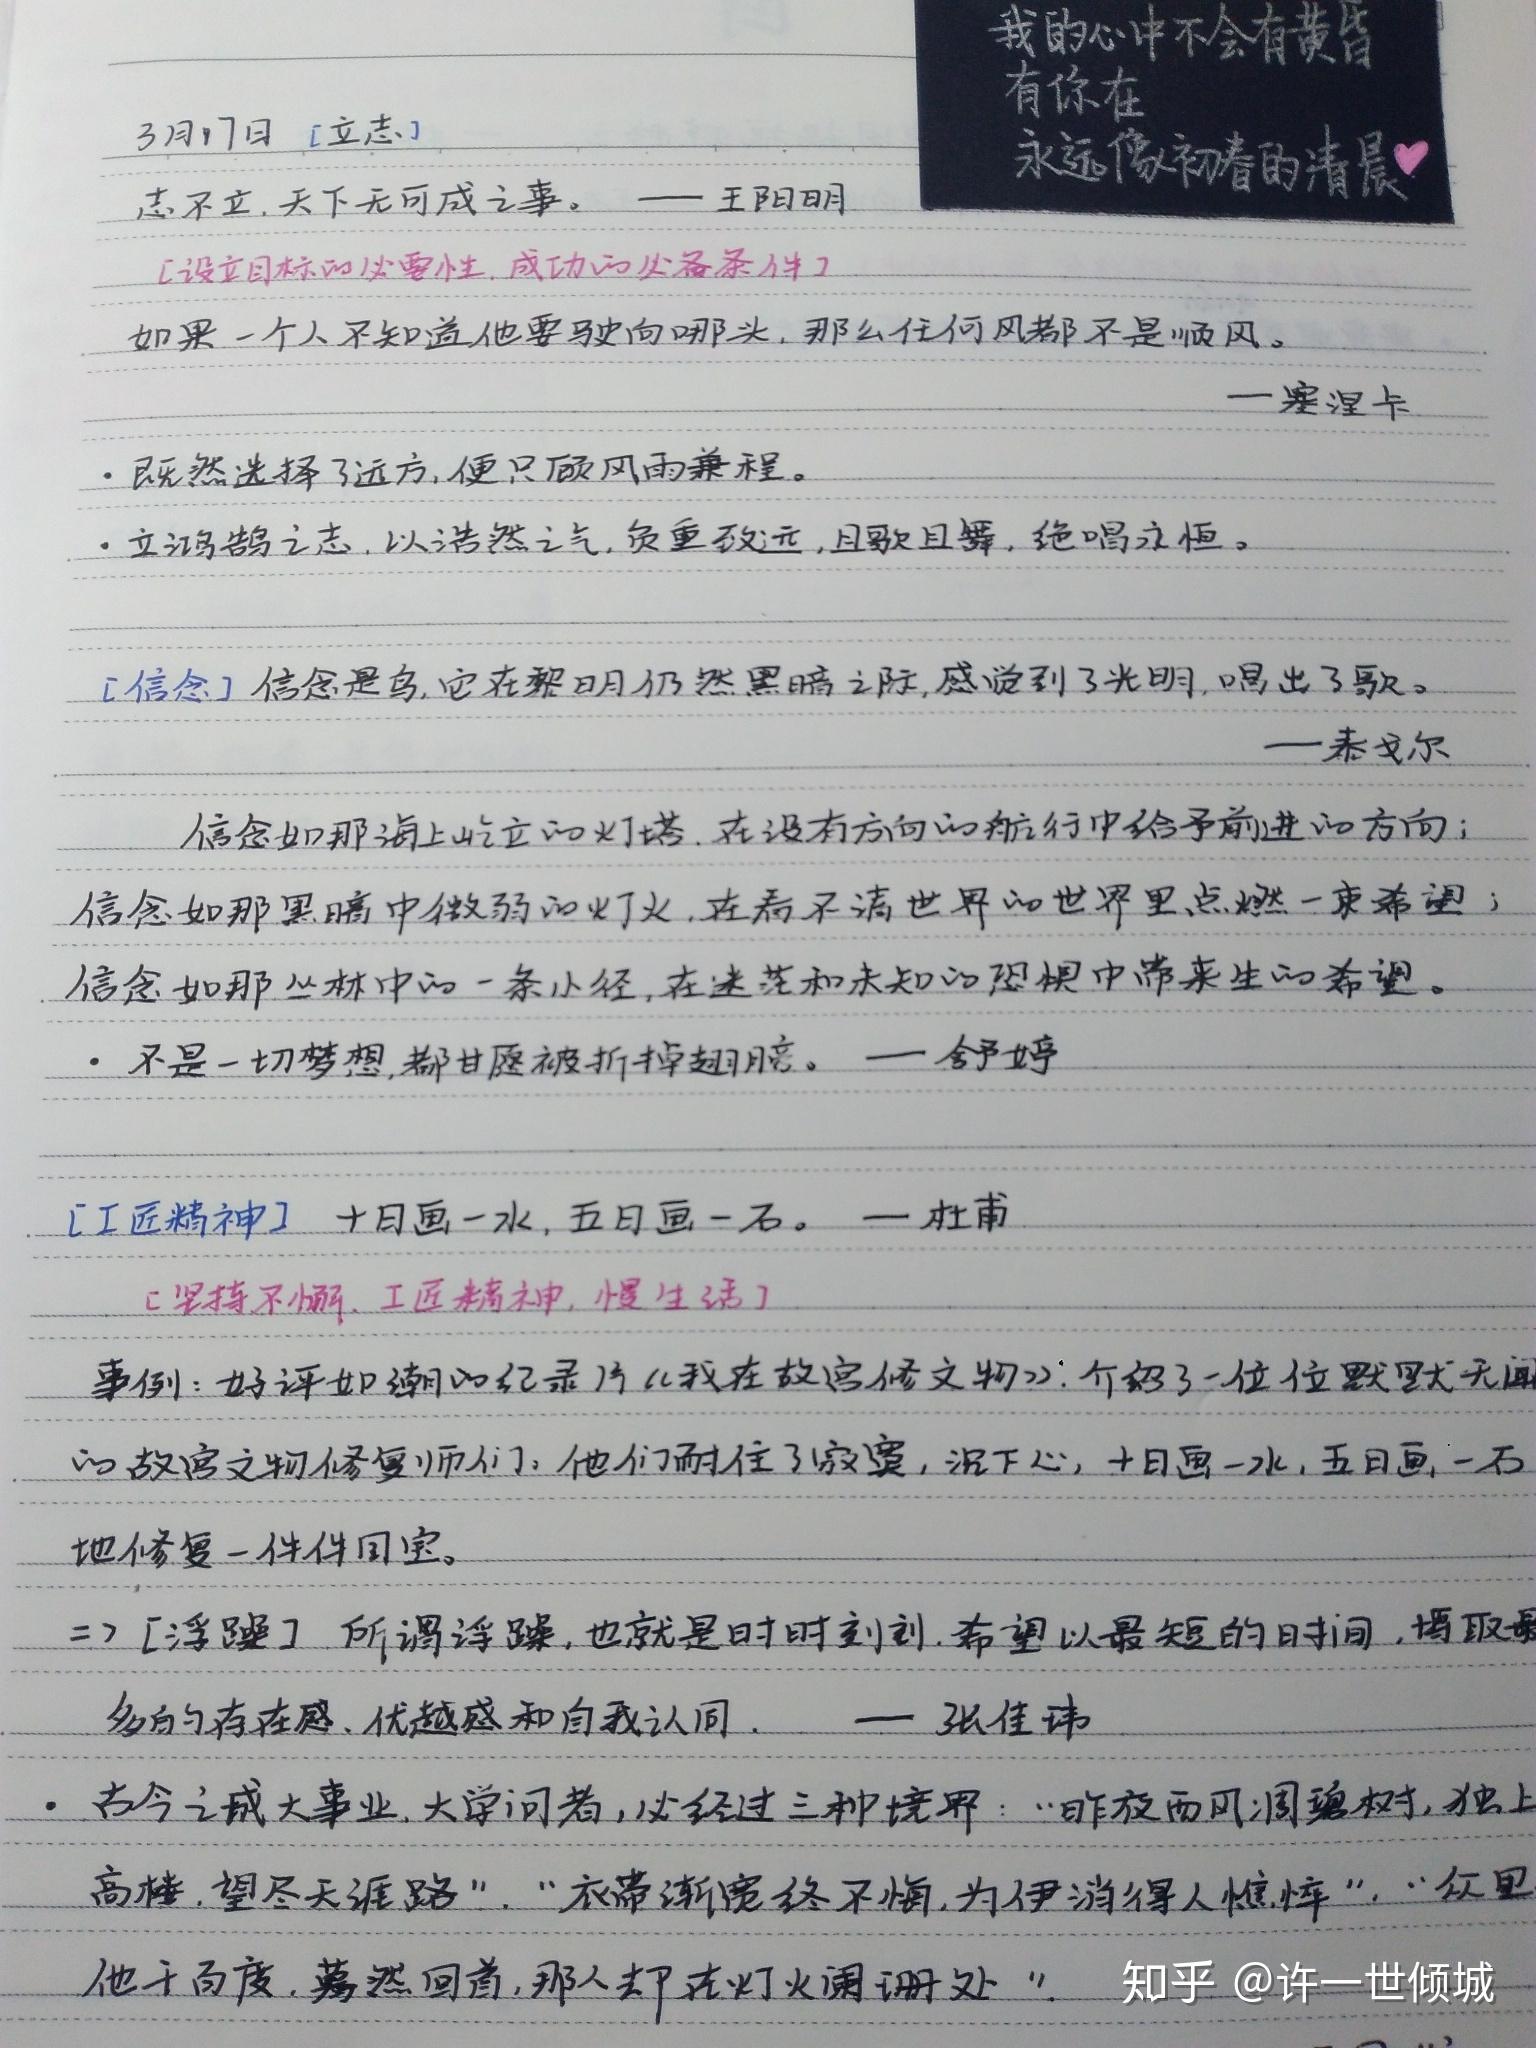 我的心中不会有黄昏
有你在
永远像初春的清晨
3月17日 [立志]
志不立,天下无可成之事。 —— 王阳明
[设立目标的必要性,成功的必备条件]
如果一个人不知道他要驶向哪头,那么任何风都不是顺风。
—塞涅卡
·既然选择了远方,便只顾风雨兼程。
·立鸿鹄之志,以浩然之气,负重致远,且歌且舞,绝唱永恒。
[信念] 信念是鸟,它在黎明仍然黑暗之际,感觉到了光明,唱出了歌。
——泰戈尔
信念如那海上屹立的灯塔,在没有方向的航行中给予前进的方向;
信念如那黑暗中微弱的灯火,在看不清世界的世界里点燃一束希望;
信念如那丛林中的一条小径,在迷茫和未知的恐惧中带来生的希望。
·不是一切梦想,都甘愿被折掉翅膀。 —— 舒婷
[工匠精神] 十日画一水,五日画一石。 — 杜甫
[坚持不懈、工匠精神,慢生活]
事例:好评如潮的纪录片《我在故宫修文物》:介绍了一位位默默无闻
的故宫文物修复师们,他们耐住了寂寞,沉下心,十日画一水,五日画一石
地修复一件件国宝。
=> [浮躁] 所谓浮躁,也就是时时刻刻,希望以最短的时间,攫取最
多的存在感、优越感和自我认同. —— 张佳玮
·古今之成大事业,大学问者,必经过三种境界:“昨夜西风凋碧树,独上
高楼,望尽天涯路”,“衣带渐宽终不悔,为伊消得人憔悴”,“众里
他千百度,蓦然回首,那人却在灯火阑珊处”.
知乎 @许一世倾城